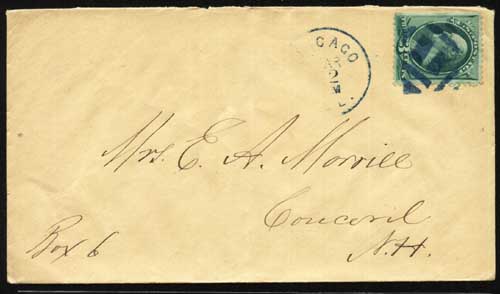 CAGO
Mrs. E. A. Morrill
Concord
N.H.
Box 6